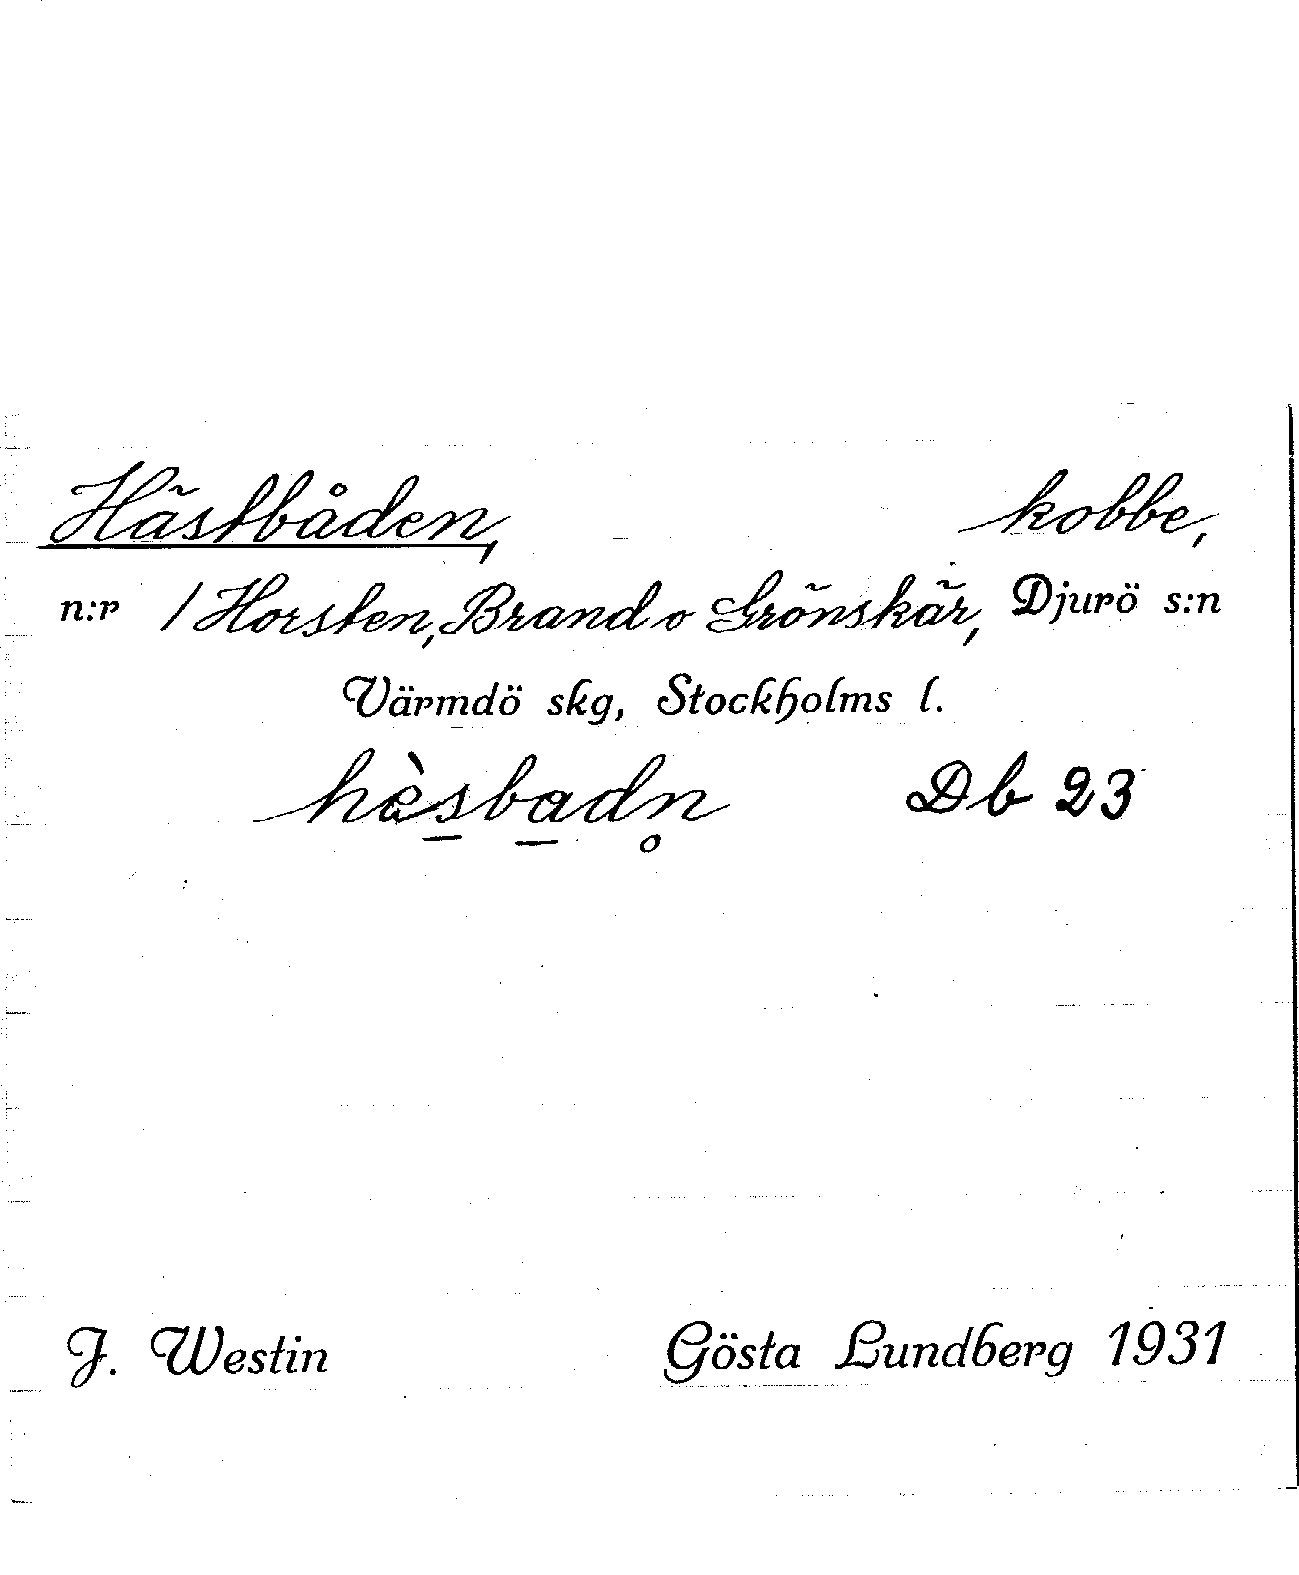 Hästbåden, kobbe,
n:r 1 Horsten, Brand o Grönskär, Djurö s:n
Värmdö skg, Stockholms l.
hὲs̱ba̱dn̥ Db 23
J. Westin Gösta Lundberg 1931